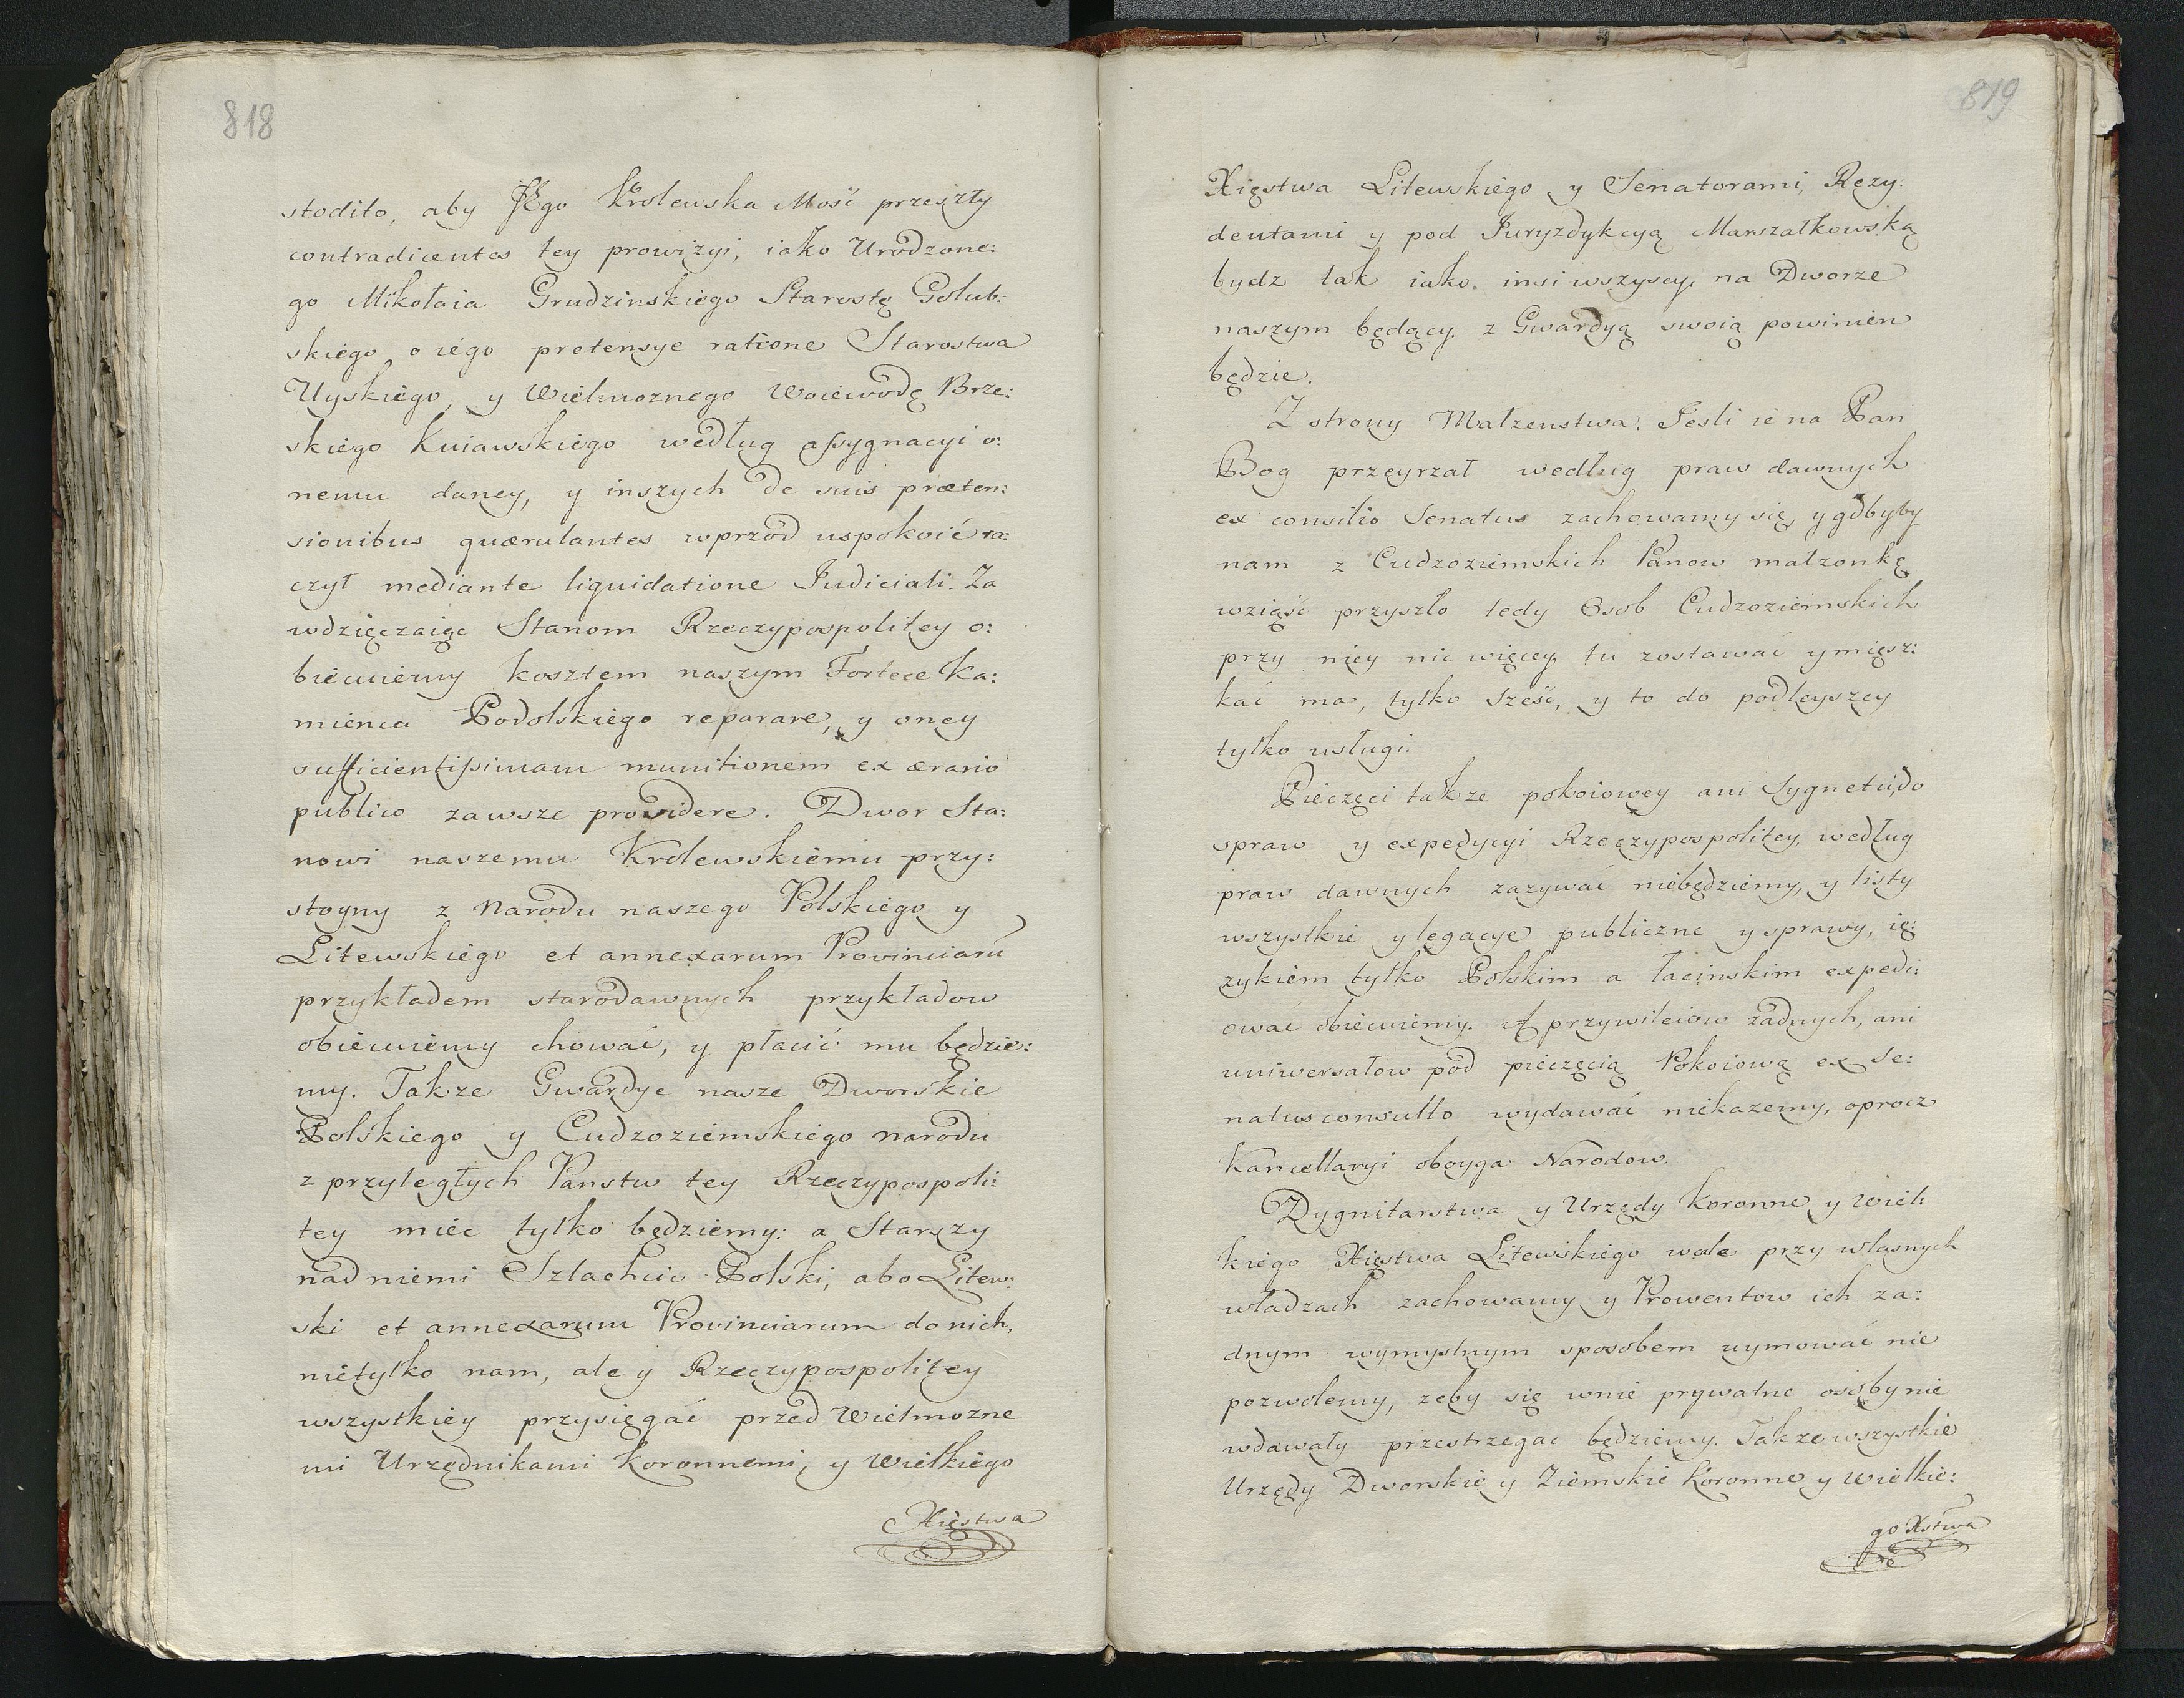 818
stodiło, aby JEgo Krolewska Mość przeszły
contradicentes tey prowizyi, iako Urodzone:
go Mikołaia Grudzinskiego Starostę Golub:
skiego o iego pretensye ratione Starostwa
Uyskiego, y Wielmoznego Woiewodę Brze:
skiego Kuiawskiego według assygnacyi o:
nemu daney, y inszych de suis præten:
sionibus quærulantes wprzod uspokoić ra:
czył mediante liquidatione Judiciali. Za
wdzięczaiąc Stanom Rzeczypospolitey o:
biecuiemy kosztem naszym Fortece Ka:
mienca Podolskiego reparare, y oney
sufficientissimam munitionem ex ærario
publico zawsze providere. Dwor Sta:
nowi naszemu Krolewskiemu przy:
stoyny z Narodu naszego Polskiego y
Litewskiego et annexarum Provinciarū
przykładem starodawnych przykładow
obiecuiemy chować, y płacić mu będzie:
my. Takze Gwardye nasze Dworskie
Polskiego y Cudzoziemskiego narodu
z przyległych Panstw tey Rzeczypospoli:
tey mieć tylko będziemy: a Starszy
nad niemi Szlachcic Polski, abo Litew:
ski et annexarum Provinciarum do nich,
nietylko nam, ale y Rzeczypospolitey
wszystkiey przysięgać przed Wielmozne
mi Urzędnikami Koronnemi, y Wielkiego
Xięstwa
819
Xięstwa Litewskiego y Senatorami, Rezy:
dentami y pod Juryzdykcyą Marszałkowską
bydz tak iako insi wszyscy na Dworze
naszym będący z Gwardyą swoią powinien
będzie.
Z strony Małzenstwa. Jesli ie na Pan
Bog przeyrzał według praw dawnych
ex consilio Senatus zachowamy się, y gdbyby
nam z Cudzoziemskich Panow małzonkę
wziąść przyszło tedy Osob Cudzoziemskich
przy niey nic więcey tu zostawać y miesz:
kać ma, tylko sześć, y to do podleyszey
tylko usługi.
Pieczęci takze pokoiowey ani Sygnetu, do
spraw y expedycyi Rzeczypospolitey, według
praw dawnych zazywać niebędziemy, y listy
wszystkie y legacye publiczne y sprawy, ię:
zykiem tylko Polskim a łacinskim expedi:
ować obiecuiemy. A przywileiow zadnych, ani
uniwersałow pod pieczęcią Pokoiową ex Se:
natusconsulto wydawać niekazemy, oprocz
Kancellaryi oboyga Narodow.
Dygnitarstwa y Urzędy Koronne y Wiel:
kiego Xięstwa Litewskiego wcale przy własnych
władzach zachowamy y Prowentow ich za:
dnym wymyslnym sposobem uymować nie
pozwolemy, zeby się wnie prywatne osoby nie
wdawały przestrzegac będziemy. Takze wszystkie
Urzędy Dworskie y Ziemskie Koronne y Wielkie:
go Xstwa